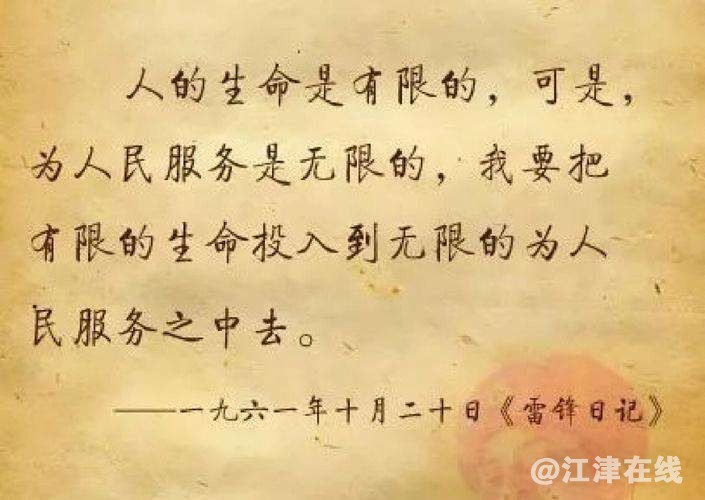 人的生命是有限的，可是，
为人民服务是无限的，我要把
有限的生命投入到无限的为人
民服务之中去。
——一九六一年十月二十日《雷锋日记》
@江津在线